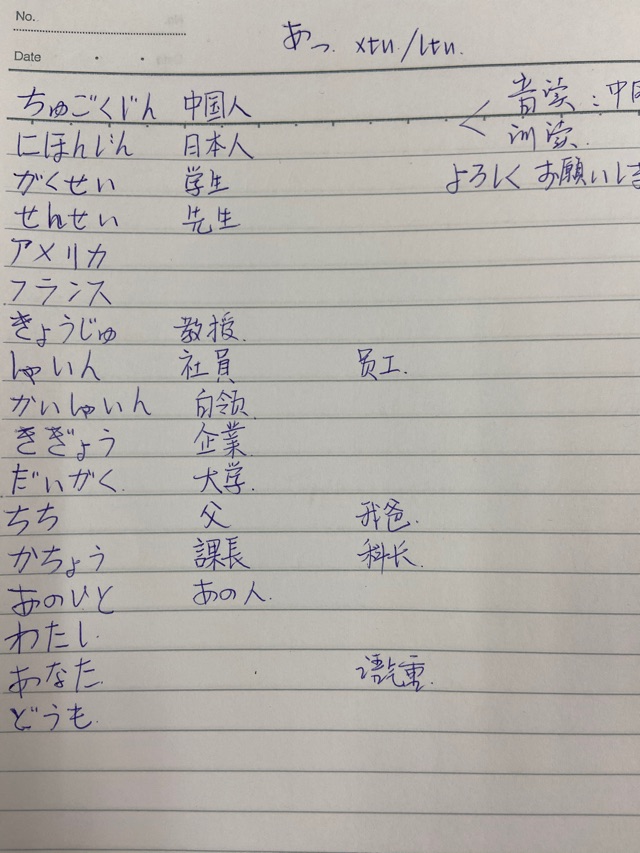 No.
Date
あっ. xtu./ltu.
ちゅごくじん 中国人
音读:中
训读.
にほんじん 日本人
がくせい 学生
よろしく お願いしま
せんせい 先生
アメリカ
フランス
きょうじゅ 教授.
しゃいん 社員 员工.
かいしゃいん 白领.
きぎょう 企業.
だいがく. 大学.
ちち 父 我爸.
かちょう 課長 科长.
あのひと あの人.
わたし.
あなた. 语气重.
どうも.